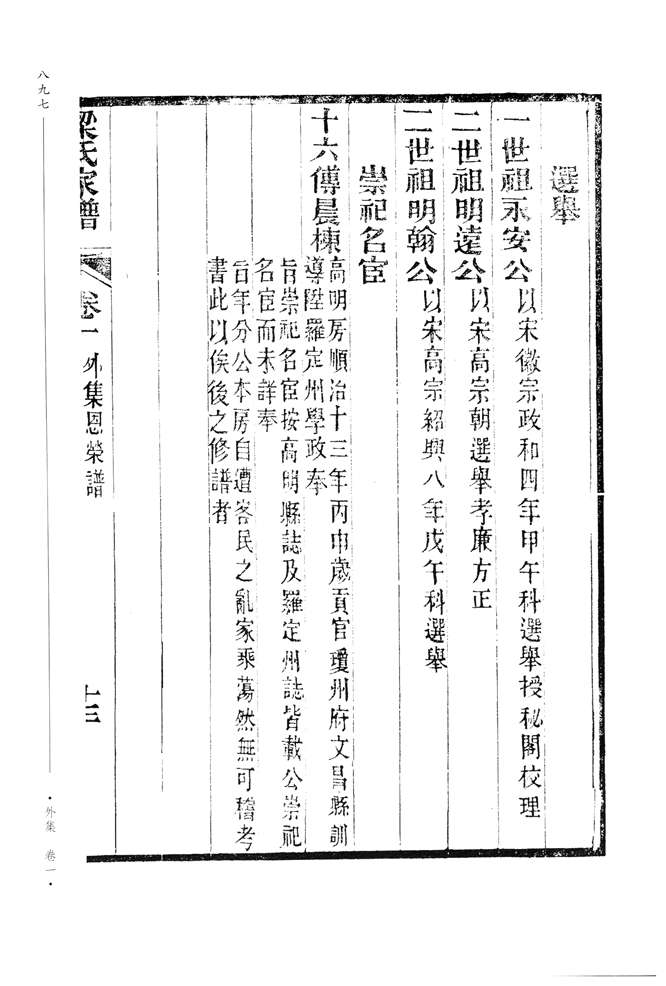 八九七
選舉
一世祖永安公以宋徽宗政和四年甲午科選舉授秘閣校理
二世祖明遠公以宋高宗朝選舉孝廉方正
二世祖明翰公以宋高宗紹興八年戊午科選舉
崇祀名宦
十六傳晨棟高明房順治十三年丙申歲貢官瓊州府文昌縣訓
導陞羅定州學政奉
旨崇祀名宦按高明縣誌及羅定州誌皆載公崇祀
名宦而未詳奉
旨年分公本房自遭客民之亂家乘蕩然無可稽考
書此以俟後之修譜者
梁氏家譜 卷一 外集恩榮譜 十三
·外集 卷一·